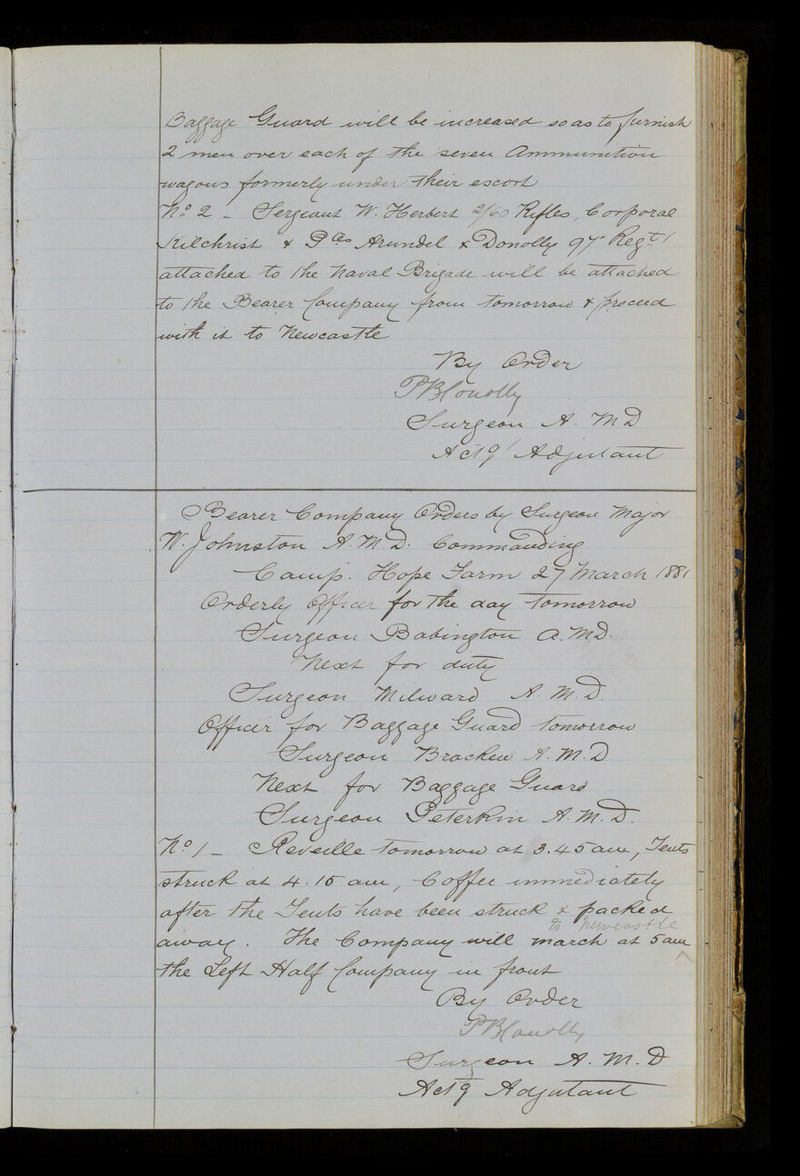 Baggage Guard will be increased so as to furnish
2 men over each of the seven Ammunition
wagons formerly under their escort
No 2 - Sergeant W. Herbert 2/60 Rifles, Corporal
Kilchrist & Ptes Arundel & Donolly 97 Regt
attached to the Naval Brigade will be attached
to the Bearer Company from tomorrow & proceed
with it to Newcastle
By Order
PBConolly
Surgeon A. M D
Actg Adjutant
Bearer Company Orders by Surgeon Major
W. Johnston A. M. D. Commanding
Camp. Hope Farm 27 March 1881
Orderly Officer for the day tomorrow
Surgeon Babington A. MD.
Next for duty
Surgeon Milward A. M. D.
Officer for Baggage Guard tomorrow
Surgeon Bracken A. M. D
Next for Baggage Guard
Surgeon Peterkin A. M. D.
No 1 - Reveille tomorrow at 3.45 am, Tents
struck at 4.15 am, Coffee immediately
after the Tents have been struck & packed
to Newcastle
away. The Company will march at 5 am
the Left Half Company in front
By Order
PBConolly
Surgeon A. M. D
Actg Adjutant